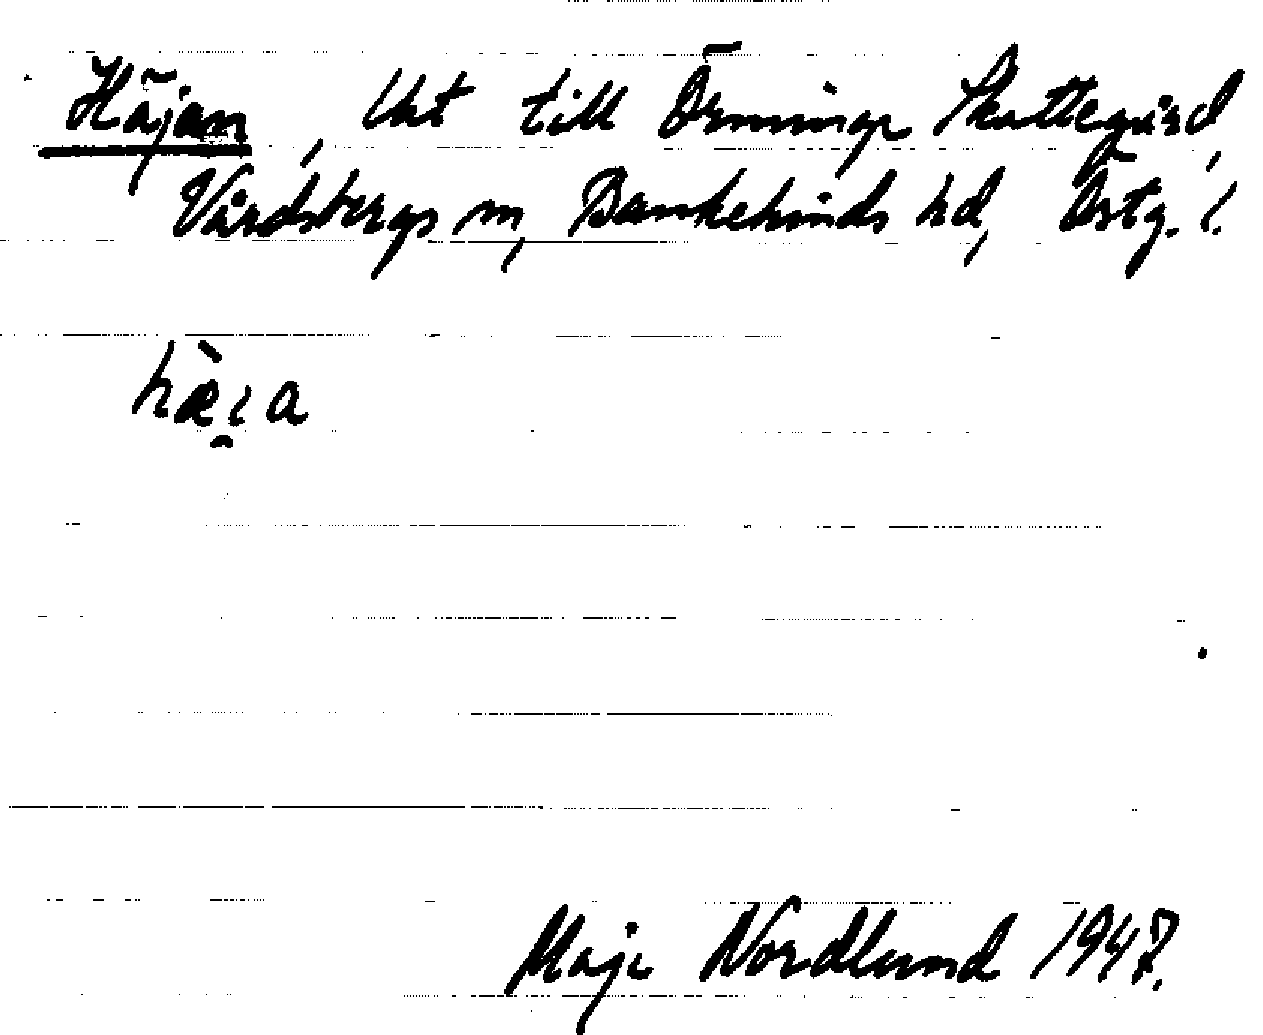 Häjan, Ut till Örminge Skattegård,
Vårdsbergs sn, Bankekinds hd, Östg. l.
Maja Nordlund 1947.